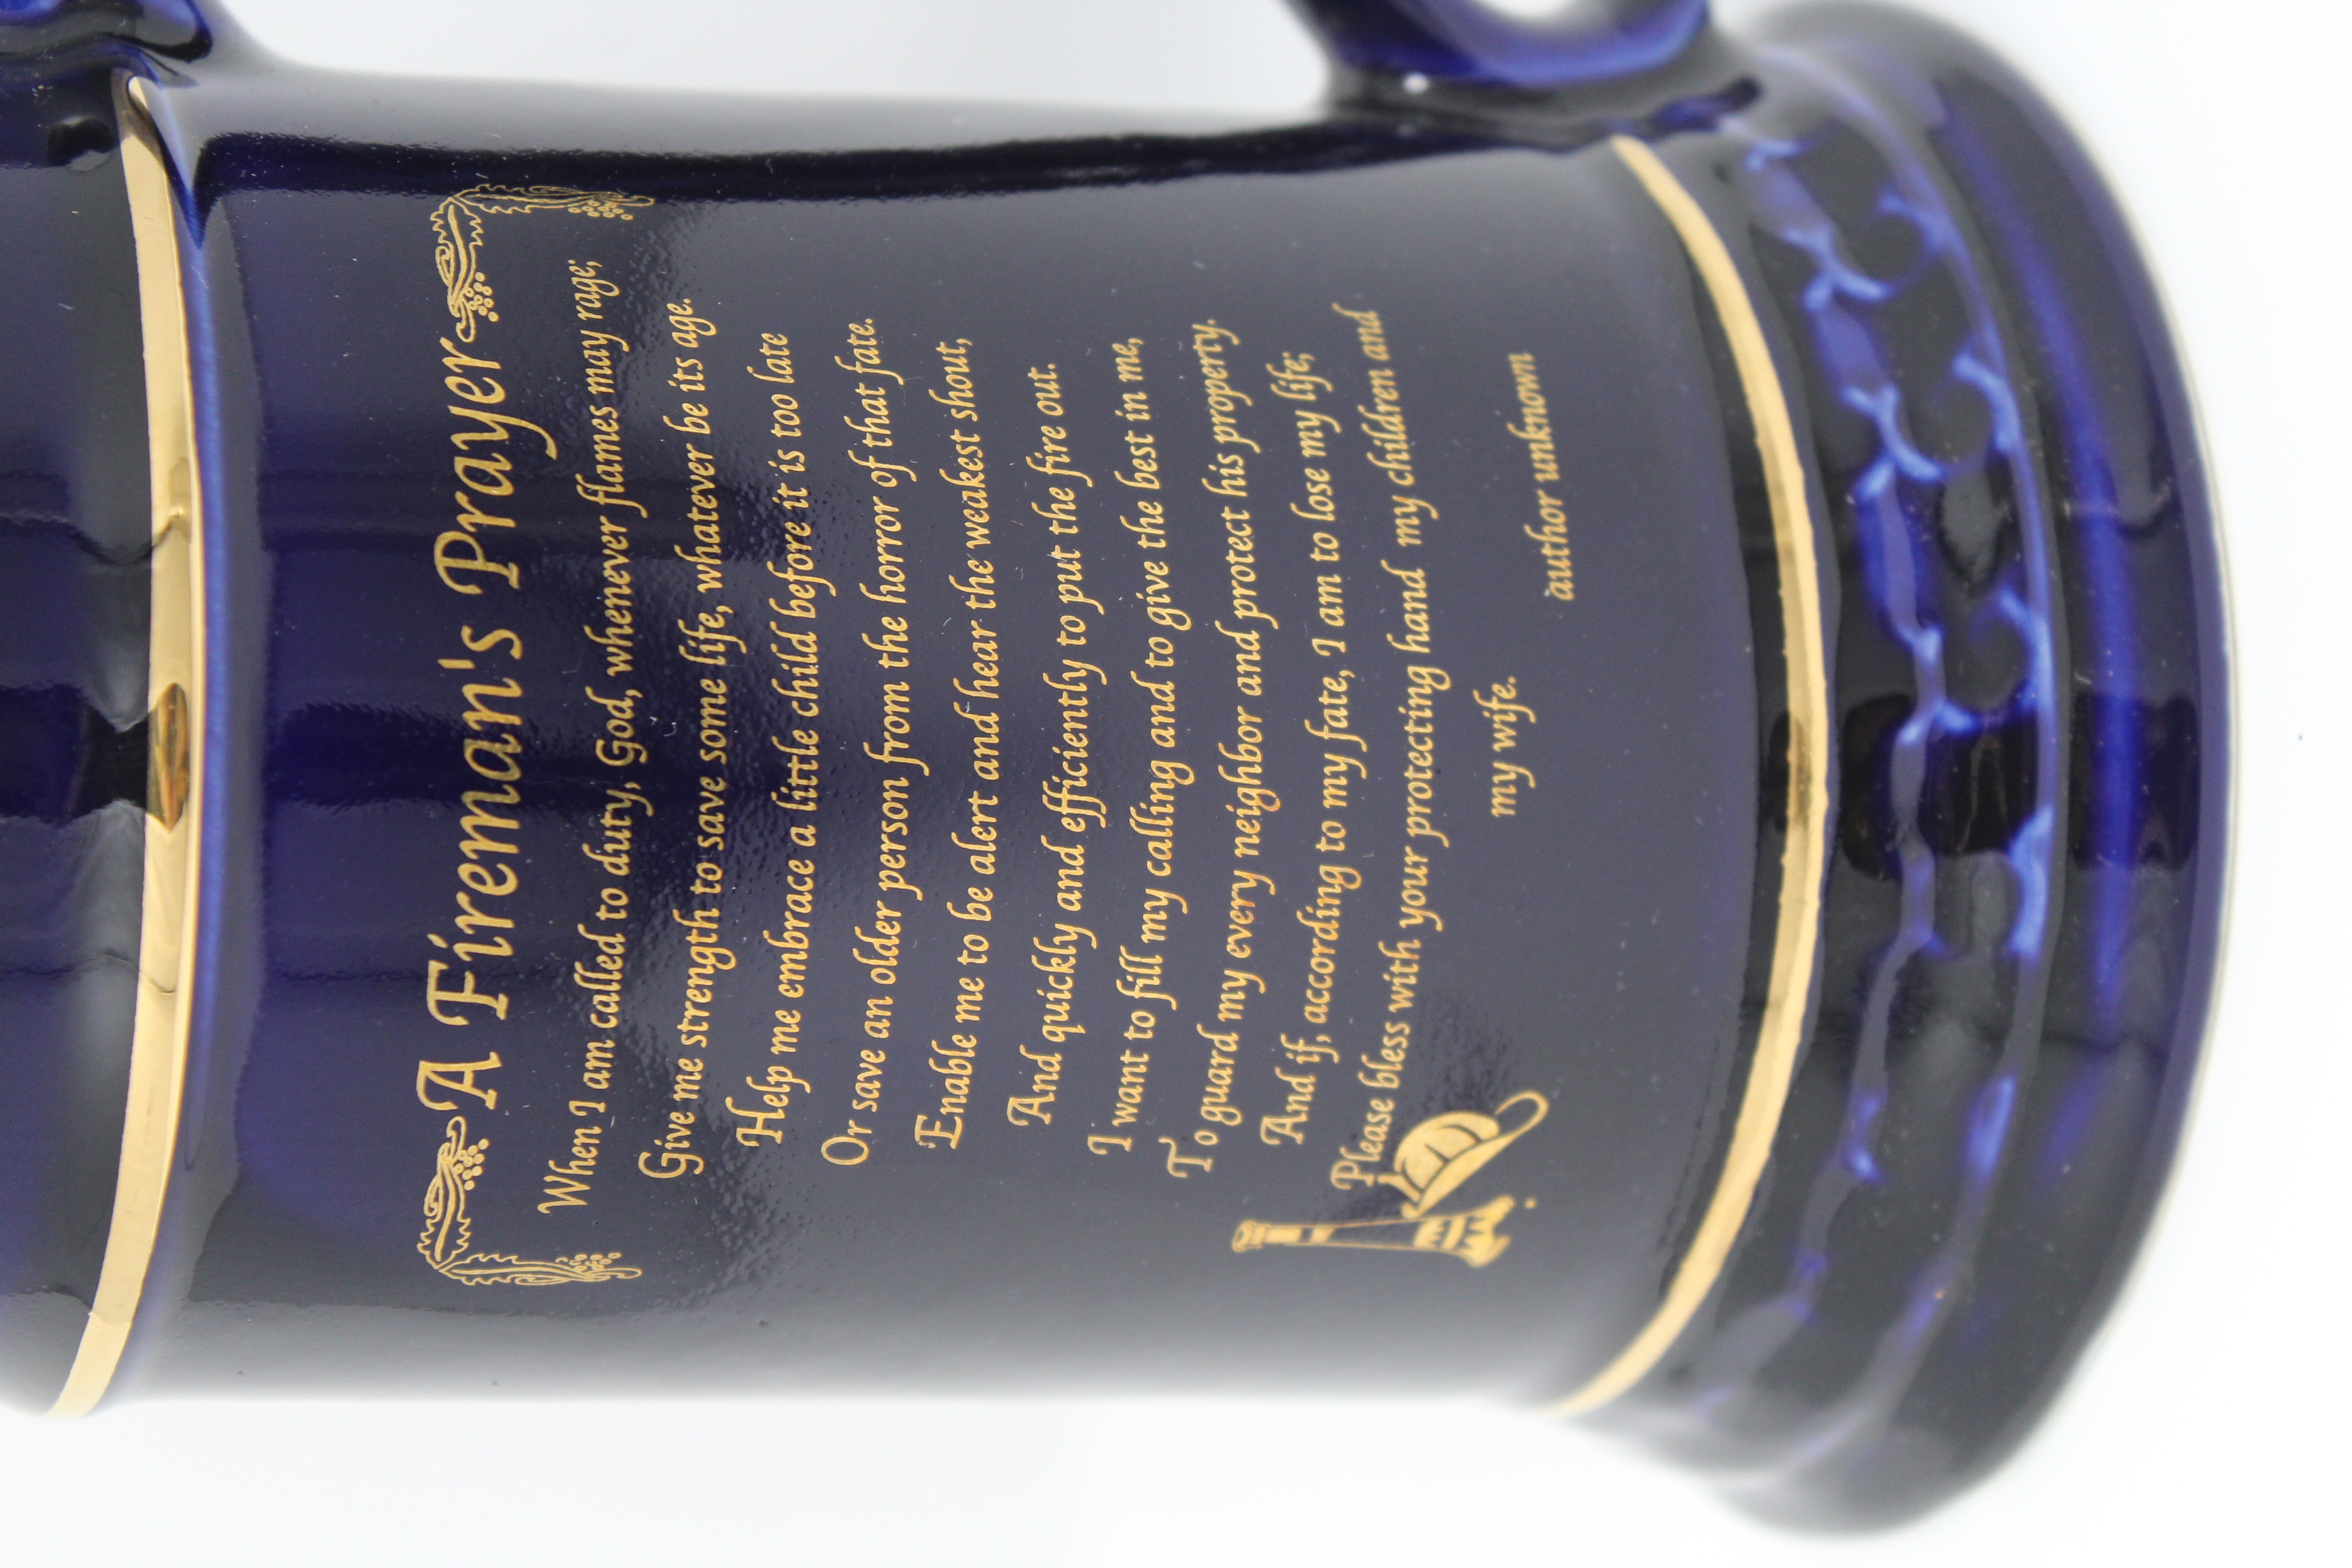 A Fireman's Prayer
When I am called to duty, God, whenever flames may rage;
Give me strength to save some life, whatever be its age.
Help me embrace a little child before it is too late
Or save an older person from the horror of that fate.
Enable me to be alert and hear the weakest shout,
And quickly and efficiently to put the fire out.
I want to fill my calling and to give the best in me,
To guard my every neighbor and protect his property.
And if, according to my fate, I am to lose my life;
Please bless with your protecting hand my children and
my wife.
author unknown